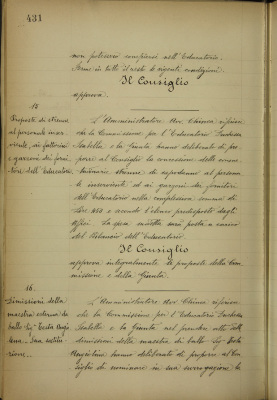 431
non potessero compiersi nell'Educatorio.
Ferme in tutto il resto le vigenti
Il Consiglio
approva.
15
Proposta di
al personale inser-
viente, ai fattorini
e garzoni dei forni
dell'Educatorio
L'Amministratore Avv Chiesa riferisce
che la Commissione per l'Educatorio Duchessa
Isabella e la Giunta hanno deliberato di pro-
porre al Consiglio la concessione delle
al personale
inserviente ed ai garzoni dei
dell'Educatorio nella complessiva somma di
Lire secondo l'elenco predisposto dagli
Uffici. La spesa relativa sarà posta a carico
del Bilancio dell'Educatorio.
Il Consiglio
approva integralmente le proposte della Com-
missione e della Giunta.
16
Dimissioni della
maestra esterna di
ballo Sig.ra Testa Ange-
lina. Sua sostitu-
zione.
L'Amministratore Avv Chiesa riferisce
che la Commissione per l'Educatorio Duchessa
Isabella e la Giunta nel prendere atto delle
dimissioni della maestra di ballo Sig.ra Testa
Angiolina hanno deliberato di proporre al Con-
siglio di nominare in sua surrogazione la